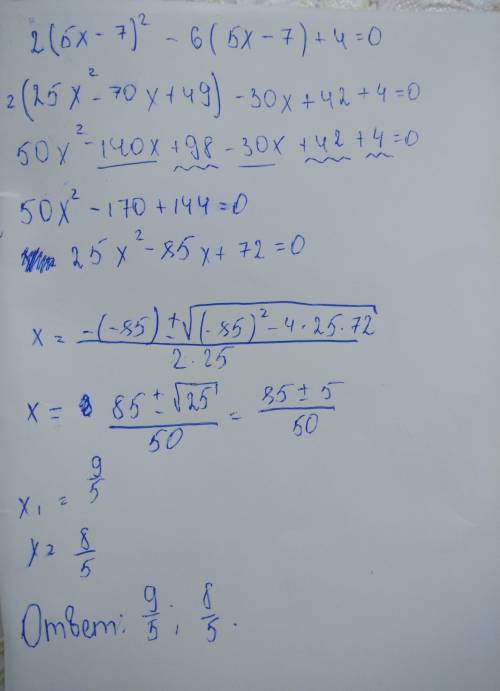 2(5x-7)² - 6(5x-7)+4=0
2(25x²-70x+49) -30x+42+4=0
50x²-140x+98-30x+42+4=0
50x²-170+144=0
25x²-85x+72=0
x = -(-85)±√(-85)²-4·25·72 / 2·25
x = 85±√25 / 50 = 85±5 / 50
x₁ = 9/5
x= 8/5
Ответ: 9/5; 8/5.